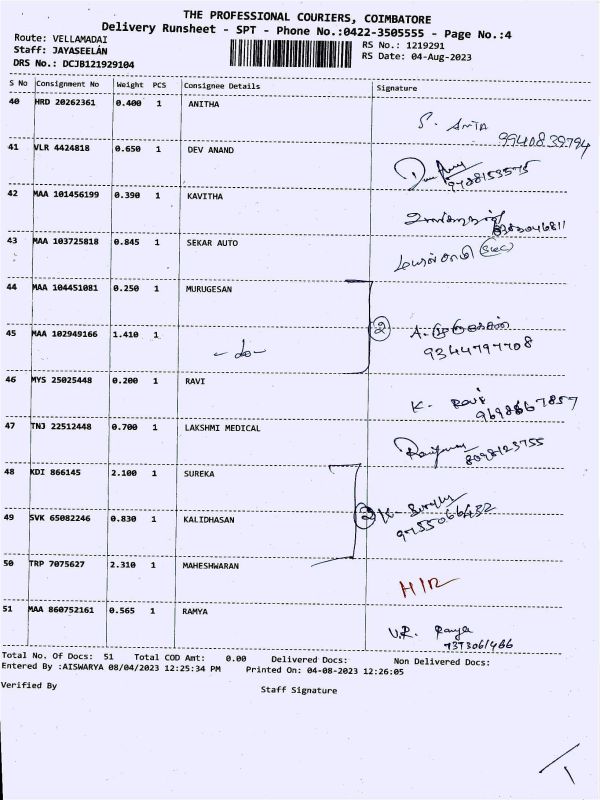 THE PROFESSIONAL COURIERS, COIMBATORE
Delivery Runsheet - SPT - Phone No.:0422-3505555 - Page No.:4
Route: VELLAMADAI
RS No.: 1219291
Staff: JAYASEELAN
RS Date: 04-Aug-2023
DRS No.: DCJB121929104
S No Consignment No Weight PCS Consignee Details Signature
40 HRD 20262361 0.400 1 ANITHA
S. Anita 9940839794
41 VLR 4424818 0.650 1 DEV ANAND
9788153575
42 MAA 101456199 0.390 1 KAVITHA
43 MAA 103725818 0.845 1 SEKAR AUTO
44 MAA 104451081 0.250 1 MURUGESAN
2
45 MAA 102949166 1.410 1 -do-
9344797708
46 MYS 25025448 0.200 1 RAVI
K. Ravi
9698667857
47 TNJ 22512448 0.700 1 LAKSHMI MEDICAL
8098123755
48 KDI 866145 2.100 1 SUREKA
2
49 SVK 65082246 0.830 1 KALIDHASAN
50 TRP 7075627 2.310 1 MAHESHWARAN
51 MAA 860752161 0.565 1 RAMYA
V.R. Ramya
Total No. Of Docs: 51 Total COD Amt: 0.00 Delivered Docs: Non Delivered Docs:
Entered By :AISWARYA 08/04/2023 12:25:34 PM Printed On: 04-08-2023 12:26:05
Verified By Staff Signature